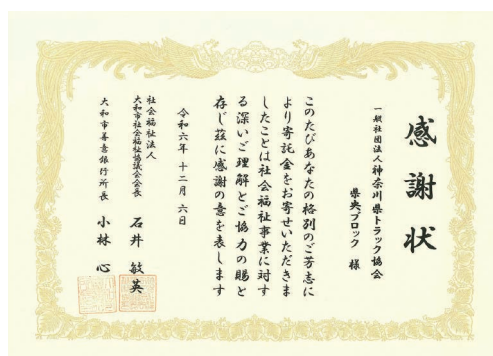 感謝状
一般社団法人神奈川県トラック協会
県央ブロック 様
このたびあなたの格別のご芳志に
より寄託金をお寄せいただきま
したことは社会福祉事業に対す
る深いご理解とご協力の賜と
存じ茲に感謝の意を表します
令和六年十二月六日
社会福祉法人
大和市社会福祉協議会会長 石井敏英
大和市善意銀行所長 小林心